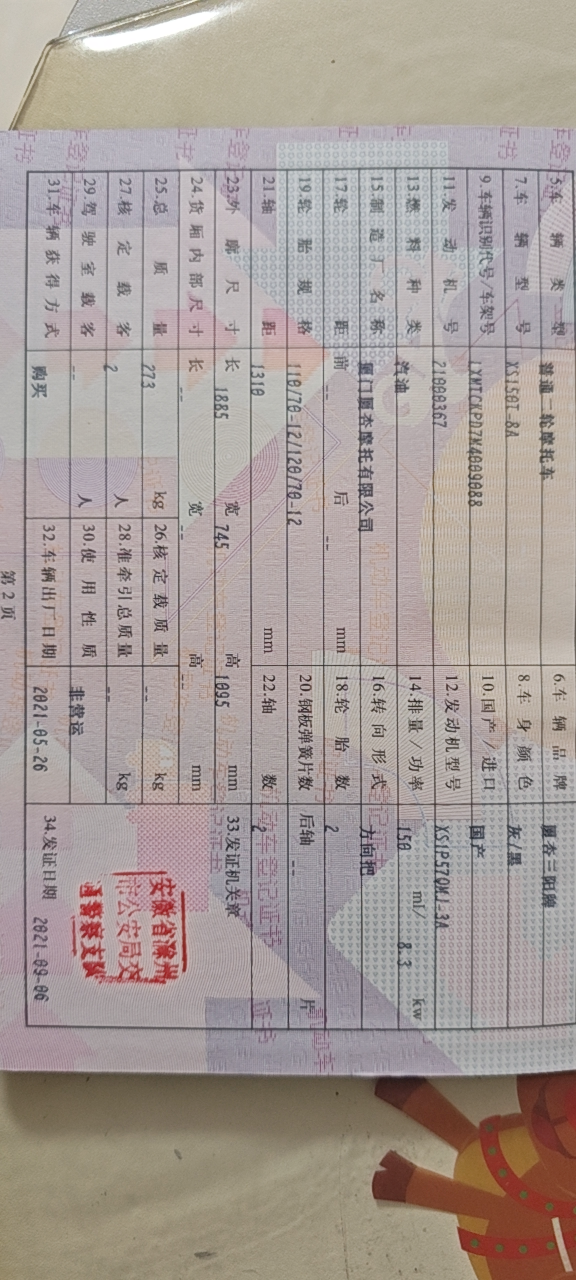 5.车辆类型 普通二轮摩托车 6.车辆品牌 厦杏三阳牌
7.车辆型号 XS150T-8A 8.车身颜色 灰/黑
9.车辆识别代号/车架号 LXMTCKPD7M4009088 10.国产/进口 国产
11.发动机号 21000367 12.发动机型号 XS1P57QMJ-3A
13.燃料种类 汽油 14.排量/功率 150 ml/ 8.3 kw
15.制造厂名称 厦门厦杏摩托有限公司 16.转向形式 方向把
17.轮距 前 -- 后 -- mm 18.轮胎数 2
19.轮胎规格 110/70-12/120/70-12 20.钢板弹簧片数 后轴 -- 片
21.轴距 1310 mm 22.轴数 2
23.外廓尺寸 长 1885 宽 745 高 1095 mm 33.发证机关章
24.货厢内部尺寸 长 -- 宽 -- 高 -- mm
25.总质量 273 kg 26.核定载质量 -- kg
27.核定载客 2 人 28.准牵引总质量 -- kg
29.驾驶室载客 -- 人 30.使用性质 非营运
31.车辆获得方式 购买 32.车辆出厂日期 2021-05-26 34.发证日期 2021-09-06
安徽省滁州
市公安局交
通警察支队
第2页